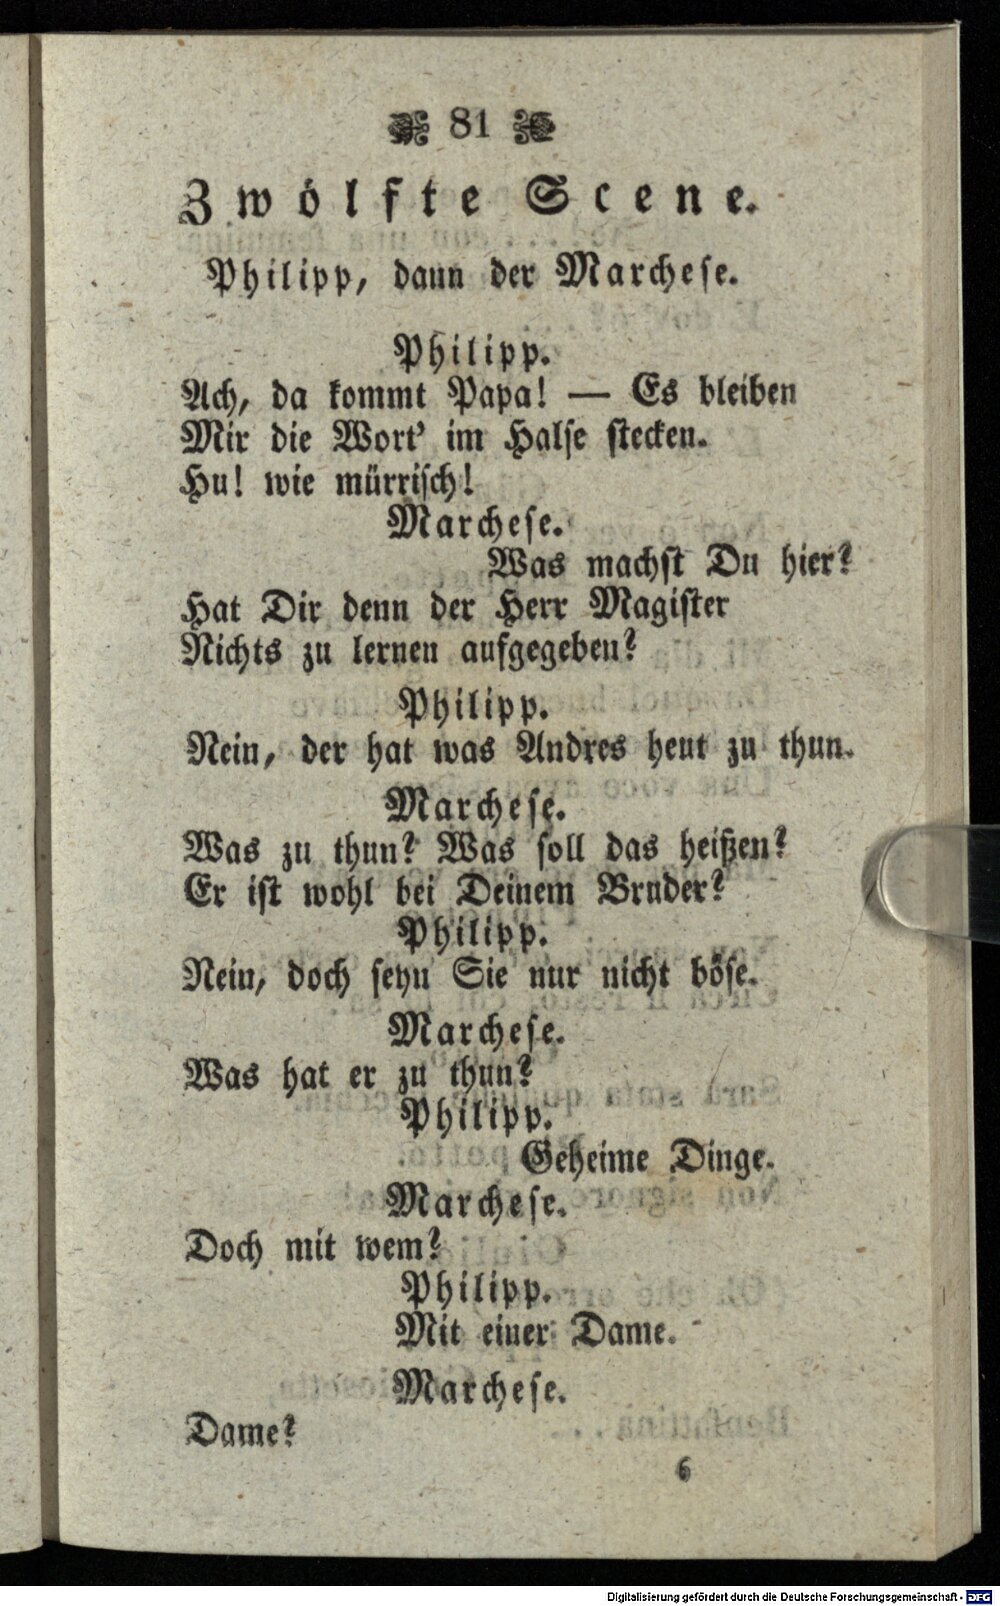 81
Zwölfte Scene.
Philipp, dann der Marchese.
Philipp.
Ach, da kommt Papa! — Es bleiben
Mir die Wort' im Halse stecken.
Hu! wie mürrisch!
Marchese.
Was machst Du hier?
Hat Dir denn der Herr Magister
Nichts zu lernen aufgegeben?
Philipp.
Nein, der hat was Andres heut zu thun.
Marchese.
Was zu thun? Was soll das heißen?
Er ist wohl bei Deinem Bruder?
Philipp.
Nein, doch seyn Sie nur nicht böse.
Marchese.
Was hat er zu thun?
Philipp.
Geheime Dinge.
Marchese.
Doch mit wem?
Philipp.
Mit einer Dame.
Marchese.
Dame?
6
Digitalisierung gefördert durch die Deutsche Forschungsgemeinschaft - DFG